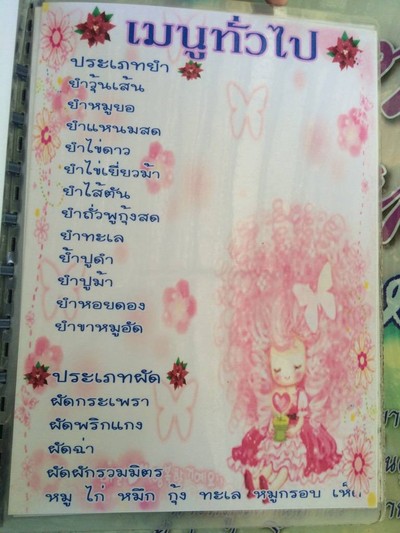 เมนูทั่วไป
ประเภทยำ
ยำวุ้นเส้น
ยำหมูยอ
ยำแหนมสด
ยำไข่ดาว
ยำไข่เยี่ยวม้า
ยำไส้ตัน
ยำถั่วพูกุ้งสด
ยำทะเล
ยำปูดำ
ยำปูม้า
ยำหอยดอง
ยำขาหมูฮัด
ประเภทผัด
ผัดกระเพรา
ผัดพริกแกง
ผัดฉ่า
ผัดผักรวมมิตร
หมู ไก่ หมึก กุ้ง ทะเล หมูกรอบ